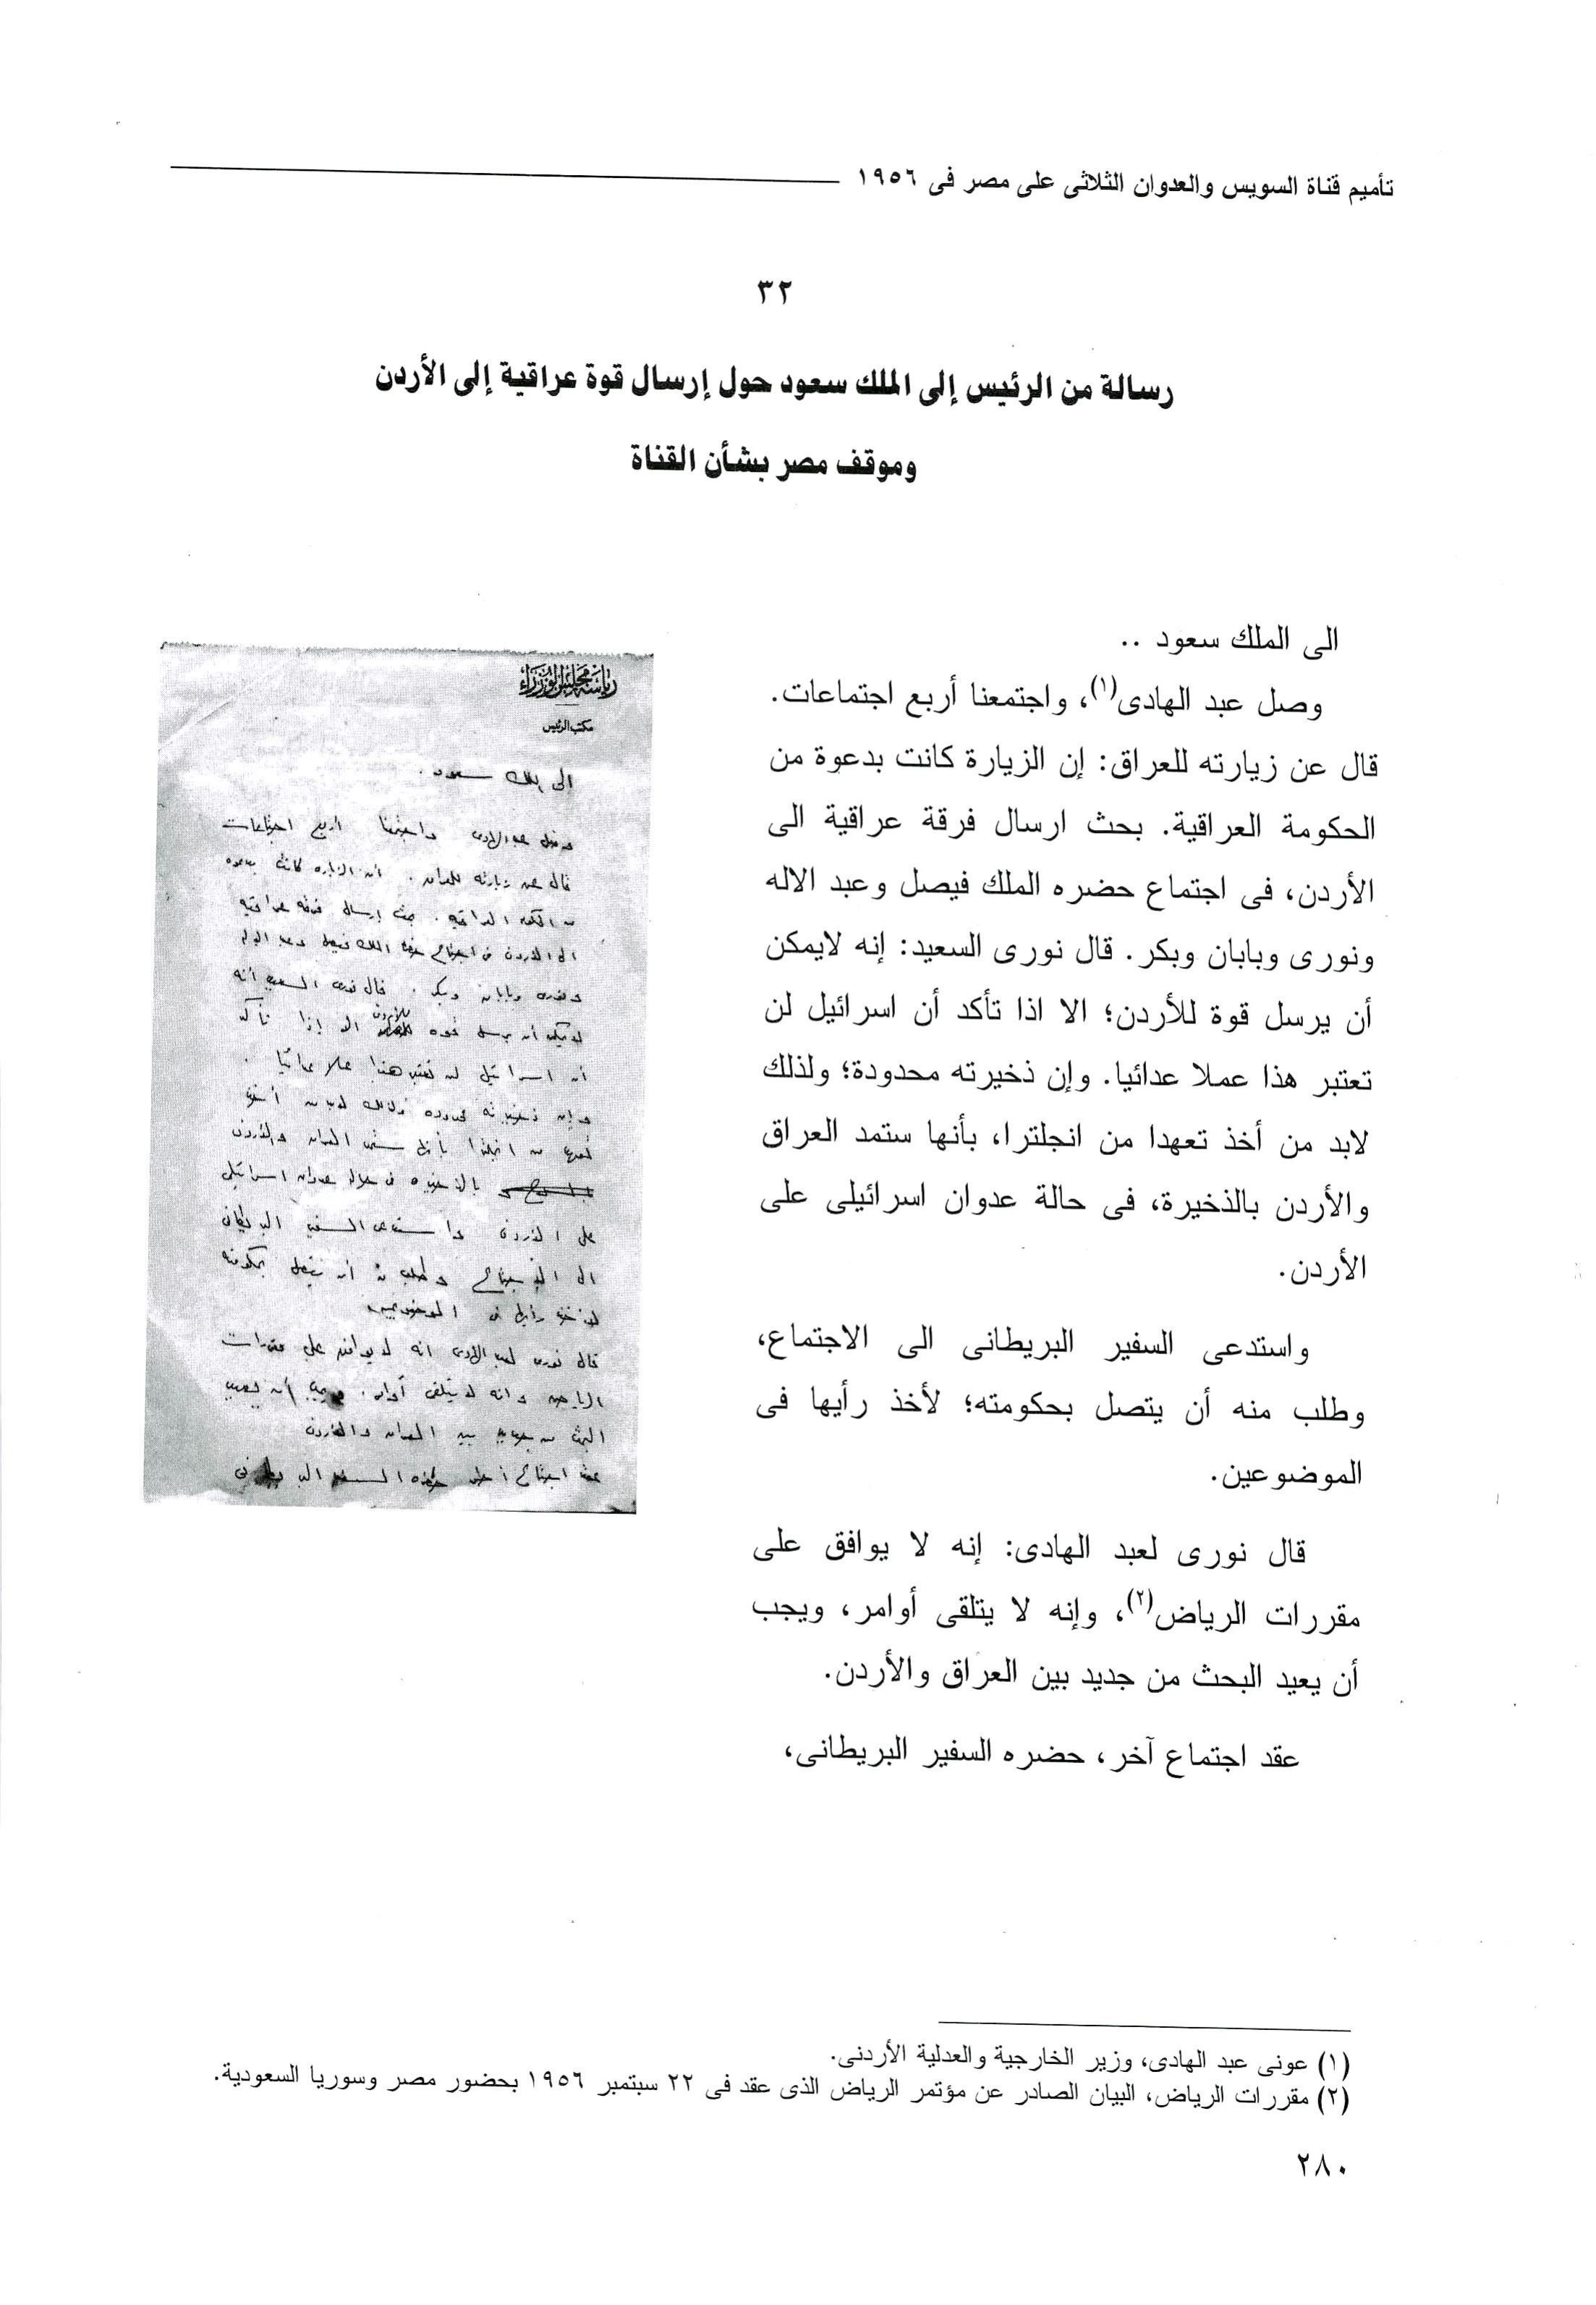 تأميم قناة السويس والعدوان الثلاثى على مصر فى ١٩٥٦
٣٢
رسالة من الرئيس إلى الملك سعود حول إرسال قوة عراقية إلى الأردن
وموقف مصر بشأن القناة
الى الملك سعود ..
وصل عبد الهادى(١)، واجتمعنا أربع اجتماعات.
قال عن زيارته للعراق: إن الزيارة كانت بدعوة من
الحكومة العراقية. بحث ارسال فرقة عراقية الى
الأردن، فى اجتماع حضره الملك فيصل وعبد الاله
ونورى وبابان وبكر. قال نورى السعيد: إنه لايمكن
أن يرسل قوة للأردن؛ الا اذا تأكد أن اسرائيل لن
تعتبر هذا عملا عدائيا. وإن ذخيرته محدودة؛ ولذلك
لابد من أخذ تعهدا من انجلترا، بأنها ستمد العراق
والأردن بالذخيرة، فى حالة عدوان اسرائيلى على
الأردن.
واستدعى السفير البريطانى الى الاجتماع،
وطلب منه أن يتصل بحكومته؛ لأخذ رأيها فى
الموضوعين.
قال نورى لعبد الهادى: إنه لا يوافق على
مقررات الرياض(٢)، وإنه لا يتلقى أوامر، ويجب
أن يعيد البحث من جديد بين العراق والأردن.
عقد اجتماع آخر، حضره السفير البريطانى،
رياسة مجلس الوزراء
مكتب الرئيس
الى الملك سعود .
وصل عبد الهادى واجتمعنا اربع اجتماعات
قال عن زيارته للعراق . أن الزيارة كانت بدعوه
من الحكومه العراقيه . بحث إرسال فرقه عراقيه
الى الاردن فى اجتماع حضره الملك فيصل وعبد الاله
ونورى وبابان وبكر . قال نورى السعيد أنه
لا يمكن أن يرسل قوه للأردن الا إذا تأكد
أن اسرائيل لن تعتبر هذا عملا عدائيا .
وإن ذخيرته محدوده ولذلك لابد من أخذ
تعهد من انجلترا بأنها ستمد العراق والاردن
بالذخيره فى حالة عدوان اسرائيلى
على الاردن واستدعى السفير البريطانى
الى الاجتماع وطلب منه أن يتصل بحكومته
لأخذ رأيها فى الموضوعين
قال نورى لعبد الهادى انه لا يوافق على مقررات
الرياض وانه لا يتلقى أوامر . ويجب أن يعيد
البحث من جديد بين العراق والاردن
عقد اجتماع آخر حضره السفير البريطانى
(١) عونى عبد الهادى، وزير الخارجية والعدلية الأردنى.
(٢) مقررات الرياض، البيان الصادر عن مؤتمر الرياض الذى عقد فى ٢٢ سبتمبر ١٩٥٦ بحضور مصر وسوريا السعودية.
٢٨٠